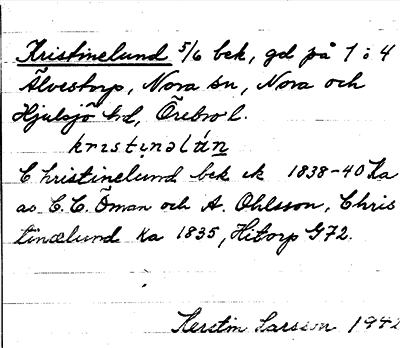 Kristinelund 5/6 bek, gd på 1:4
Älvestorp, Nora sn, Nora och
Hjulsjö hd, Örebro l.
kristinəlún
Christinelund bek ek 1838-40 Ka
av C. C. Öman och A. Ohlsson, Chris
tinælund Ka 1835, Hitorp G72.
Kerstin Larsson 1942